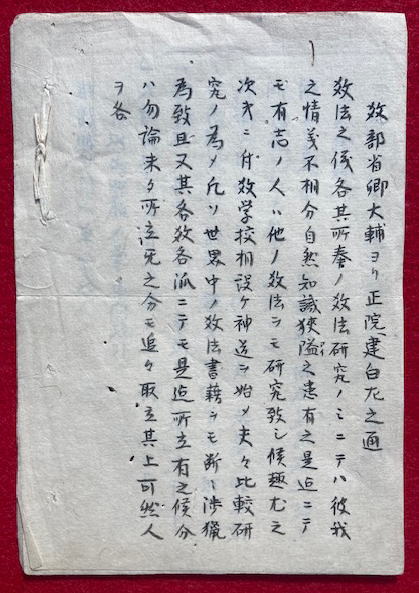 教部省卿大輔ヨリ正院建白左之通
教法之儀各其所奉ノ教法研究ノミニテハ彼我
之情義不相分自然知識狭隘之患有之是迄ニテ
モ有志ノ人ハ他ノ教法ヲモ研究致シ候趣尤之
次第ニ付教学校相設ケ神道ヲ始メ夫々比較研
究ノ為メ凡ソ世界中ノ教法書籍ヲモ断ニ渉猟
為致且又其各教各派ニテモ是迄所立有之候分
ハ勿論未タ所立死之分モ追々取立其上可然人
ヲ各